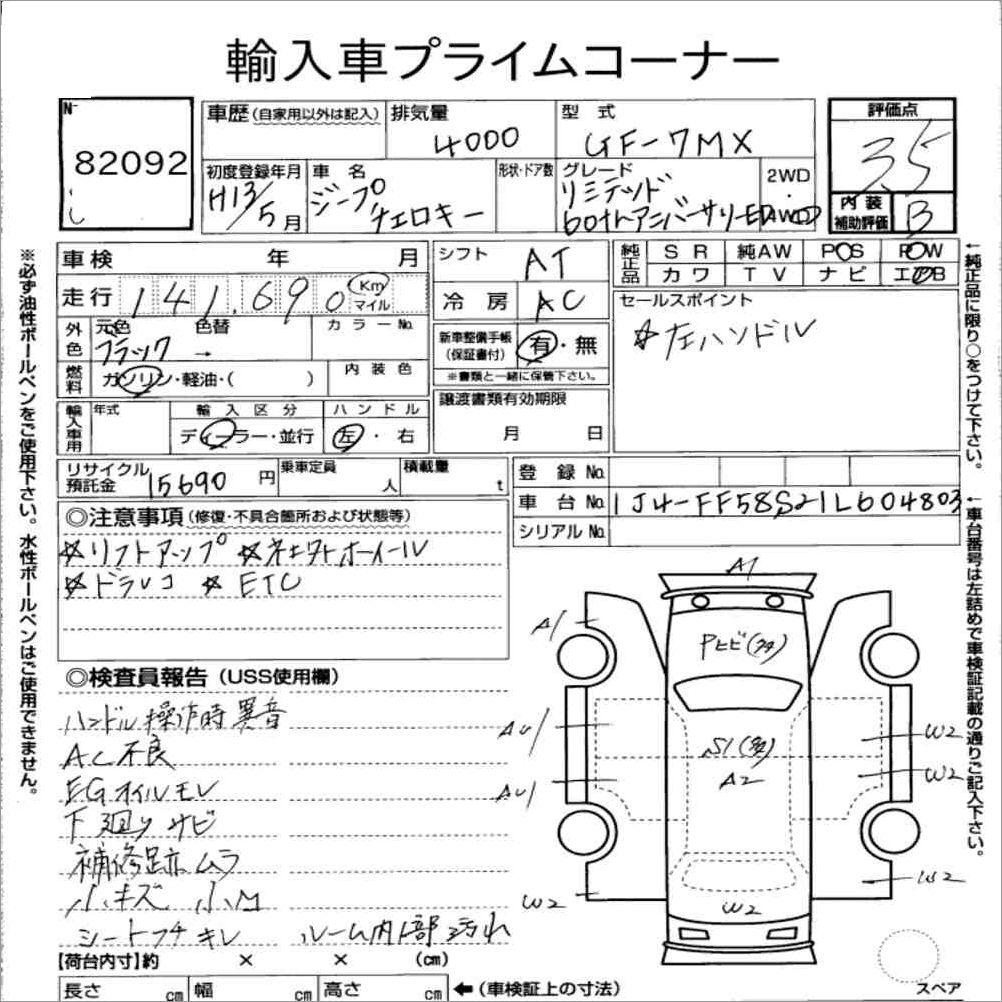 輸入車プライムコーナー
No
82092
車歴（自家用以外は記入）
排気量
4000
型式
GF-7MX
評価点
3.5
初度登録年月
H13/5月
車名
ジープ
チェロキー
形状・ドア数
グレード
リミテッド
60thアニバーサリーED
2WD
・
4WD
内装
補助評価
B
車検 年 月
シフト
AT
純正品
SR 純AW POS POW
カワ TV ナビ エアB
走行
141,690
Km
マイル
冷房
AC
セールスポイント
☆左ハンドル
外色
元色
ブラック
色替
→
カラーNo.
新車整備手帳
（保証書付）
有・無
※書類と一緒に保管下さい。
燃料
ガソリン・軽油・（ ）
内装色
輸入車用
年式
輸入区分
ディーラー・並行
ハンドル
左・右
譲渡書類有効期限
月 日
リサイクル
預託金
15690円
乗車定員
人
積載量
t
登録No.
車台No.
1J4-FF58S21L604803
シリアルNo.
◎注意事項（修復・不具合箇所および状態等）
☆リフトアップ ☆社外ホイール
☆ドラレコ ☆ETC
◎検査員報告（USS使用欄）
ハンドル操作時異音
AC不良
EGオイルモレ
下廻りサビ
補修跡ムラ
小キズ 小凹
シートフチキレ ルーム内上部汚れ
【荷台内寸】約 × × （cm）
長さ cm 幅 cm 高さ cm
←（車検証上の寸法）
A1
A1
Pヒビ(多)
AU1
S1(多)
A2
W2
AU1
W2
W2
W2
W2
スペア
※必ず油性ボールペンをご使用下さい。水性ボールペンはご使用できません。
←純正品に限り○をつけて下さい。
←車台番号は左詰めで車検証記載の通りご記入下さい。